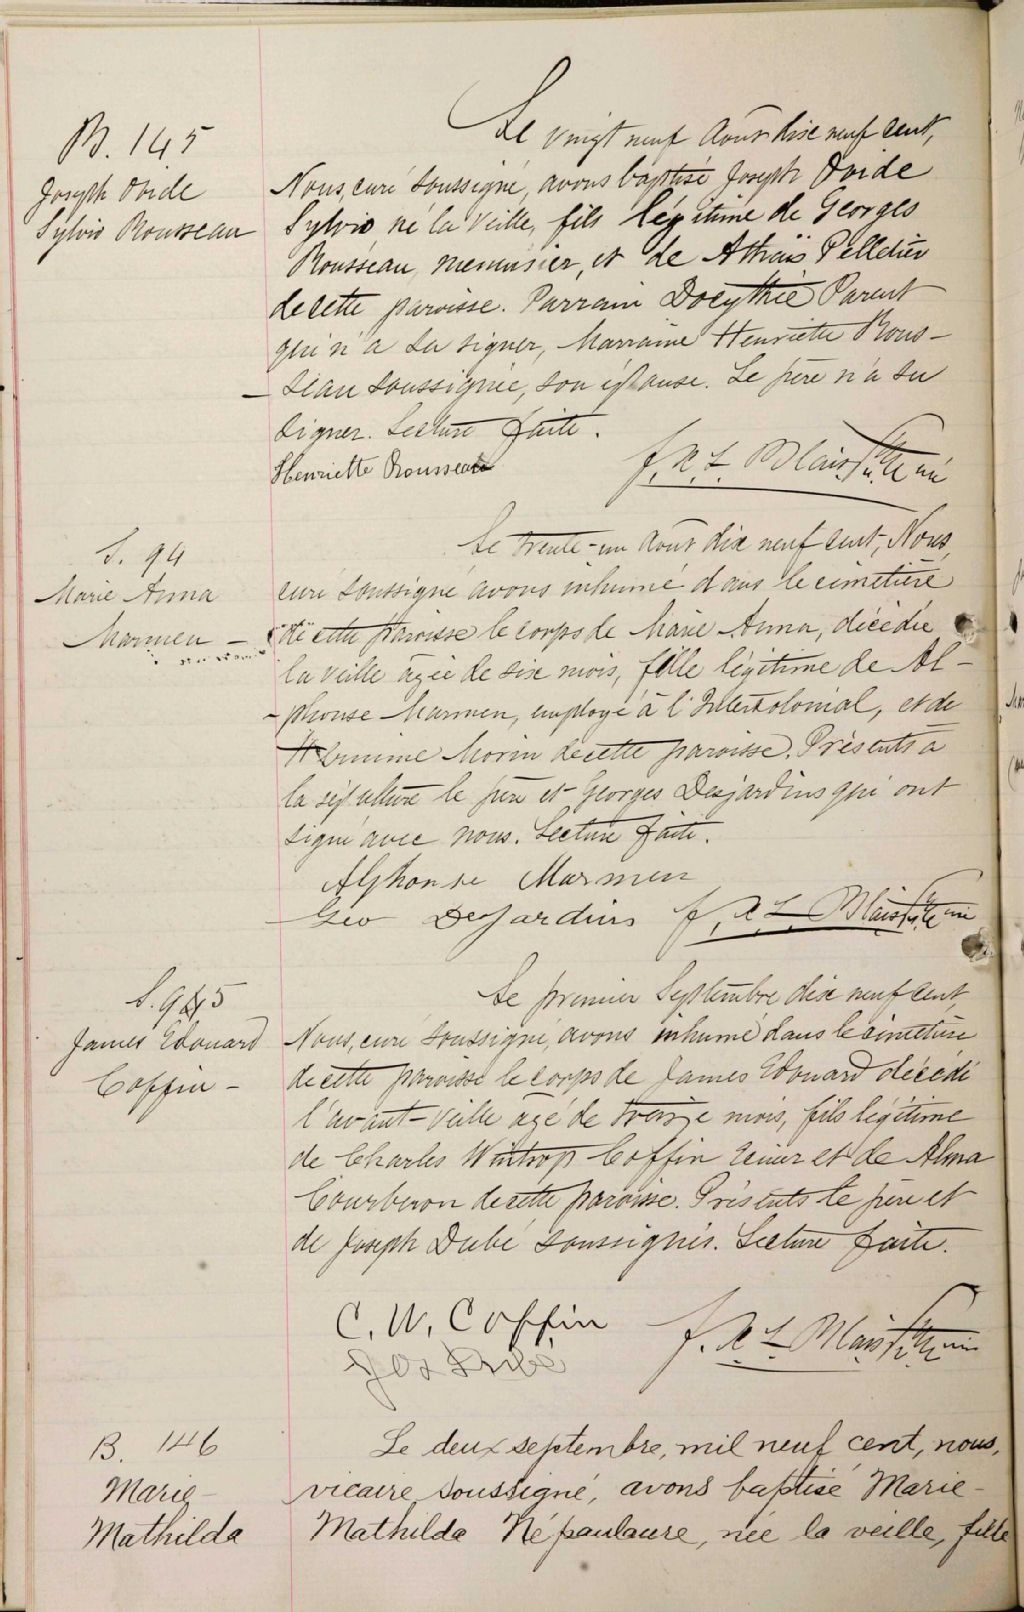 B. 145
Joseph Ovide
Sylvio Rousseau
Le vingt neuf Août dix neuf cent,
Nous, curé soussigné, avons baptisé Joseph Ovide
Sylvio né la veille, fils légitime de Georges
Rousseau, menuisier, et de Athaïs Pelletier
de cette paroisse. Parrain Docythié Parent
qui n'a su signer, Marraine Henriette Rous-
-seau soussignée, son épouse. Le père n'a su
signer. Lecture faite.
Henriette Rousseau
J. A. L. Blais Ptre curé
S. 94
Marie Anna
Marmen -
Le trente-un Août dix neuf cent, Nous,
curé soussigné avons inhumé dans le cimetière
de cette paroisse le corps de Marie Anna, décédée
la veille agée de six mois, fille légitime de Al-
-phonse Marmen, employé à l'Intercolonial, et de
Morin de cette paroisse. Présents à
la sépulture le père et Georges Desjardins qui ont
signé avec nous. Lecture faite.
Alphonse Marmen
Geo Desjardins J. A. L. Blais Ptre curé
S. 95
James Edouard
Coffin -
Le premier Septembre dix neuf cent,
Nous, curé soussigné, avons inhumé dans le cimetière
de cette paroisse le corps de James Edouard décédé
l'avant-veille âgé de treize mois, fils légitime
de Charles Wintrop Coffin et de Alma
Courberon de cette paroisse. Présents le père et
de Joseph Dubé soussignés. Lecture faite.
C. W. Coffin
Jos Dubé
J. A. L. Blais Ptre curé
B. 146
Marie-
Mathilda
Le deux septembre, mil neuf cent, nous,
vicaire soussigné, avons baptisé Marie-
Mathilda Népaulaure, née la veille, fille